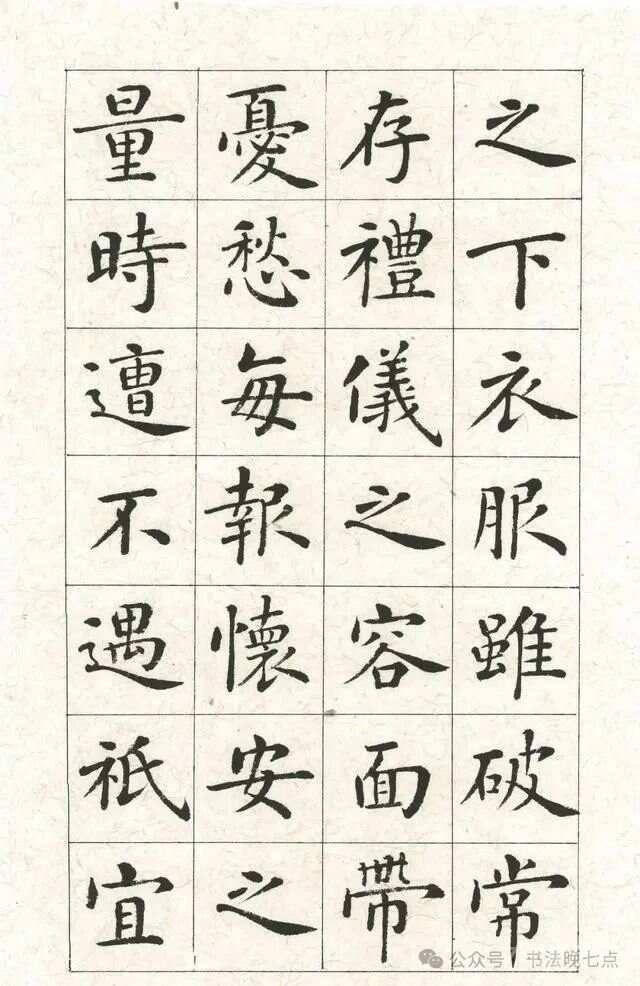 之下衣服雖破常
存禮儀之容面帶
憂愁每報懷安之
量時遭不遇祇宜
公众号 书法晚七点